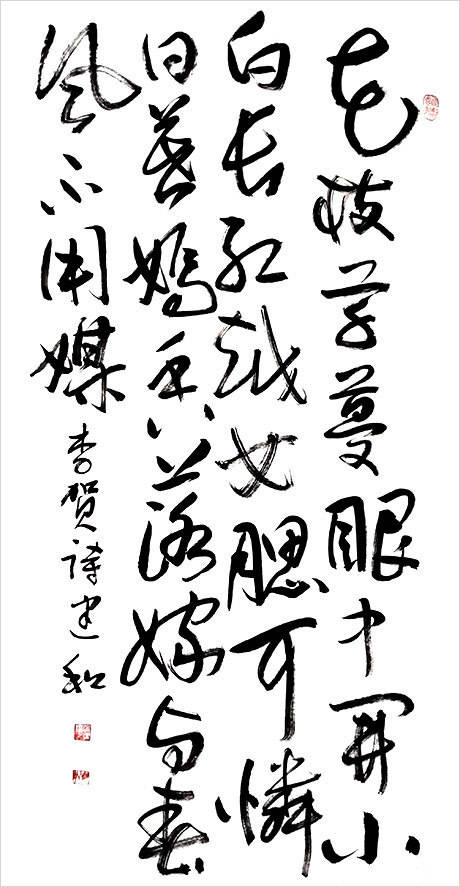 花枝草蔓眼中開小
白长红越女腮可憐
日暮嫣香落嫁与春
风不用媒
李贺诗建和